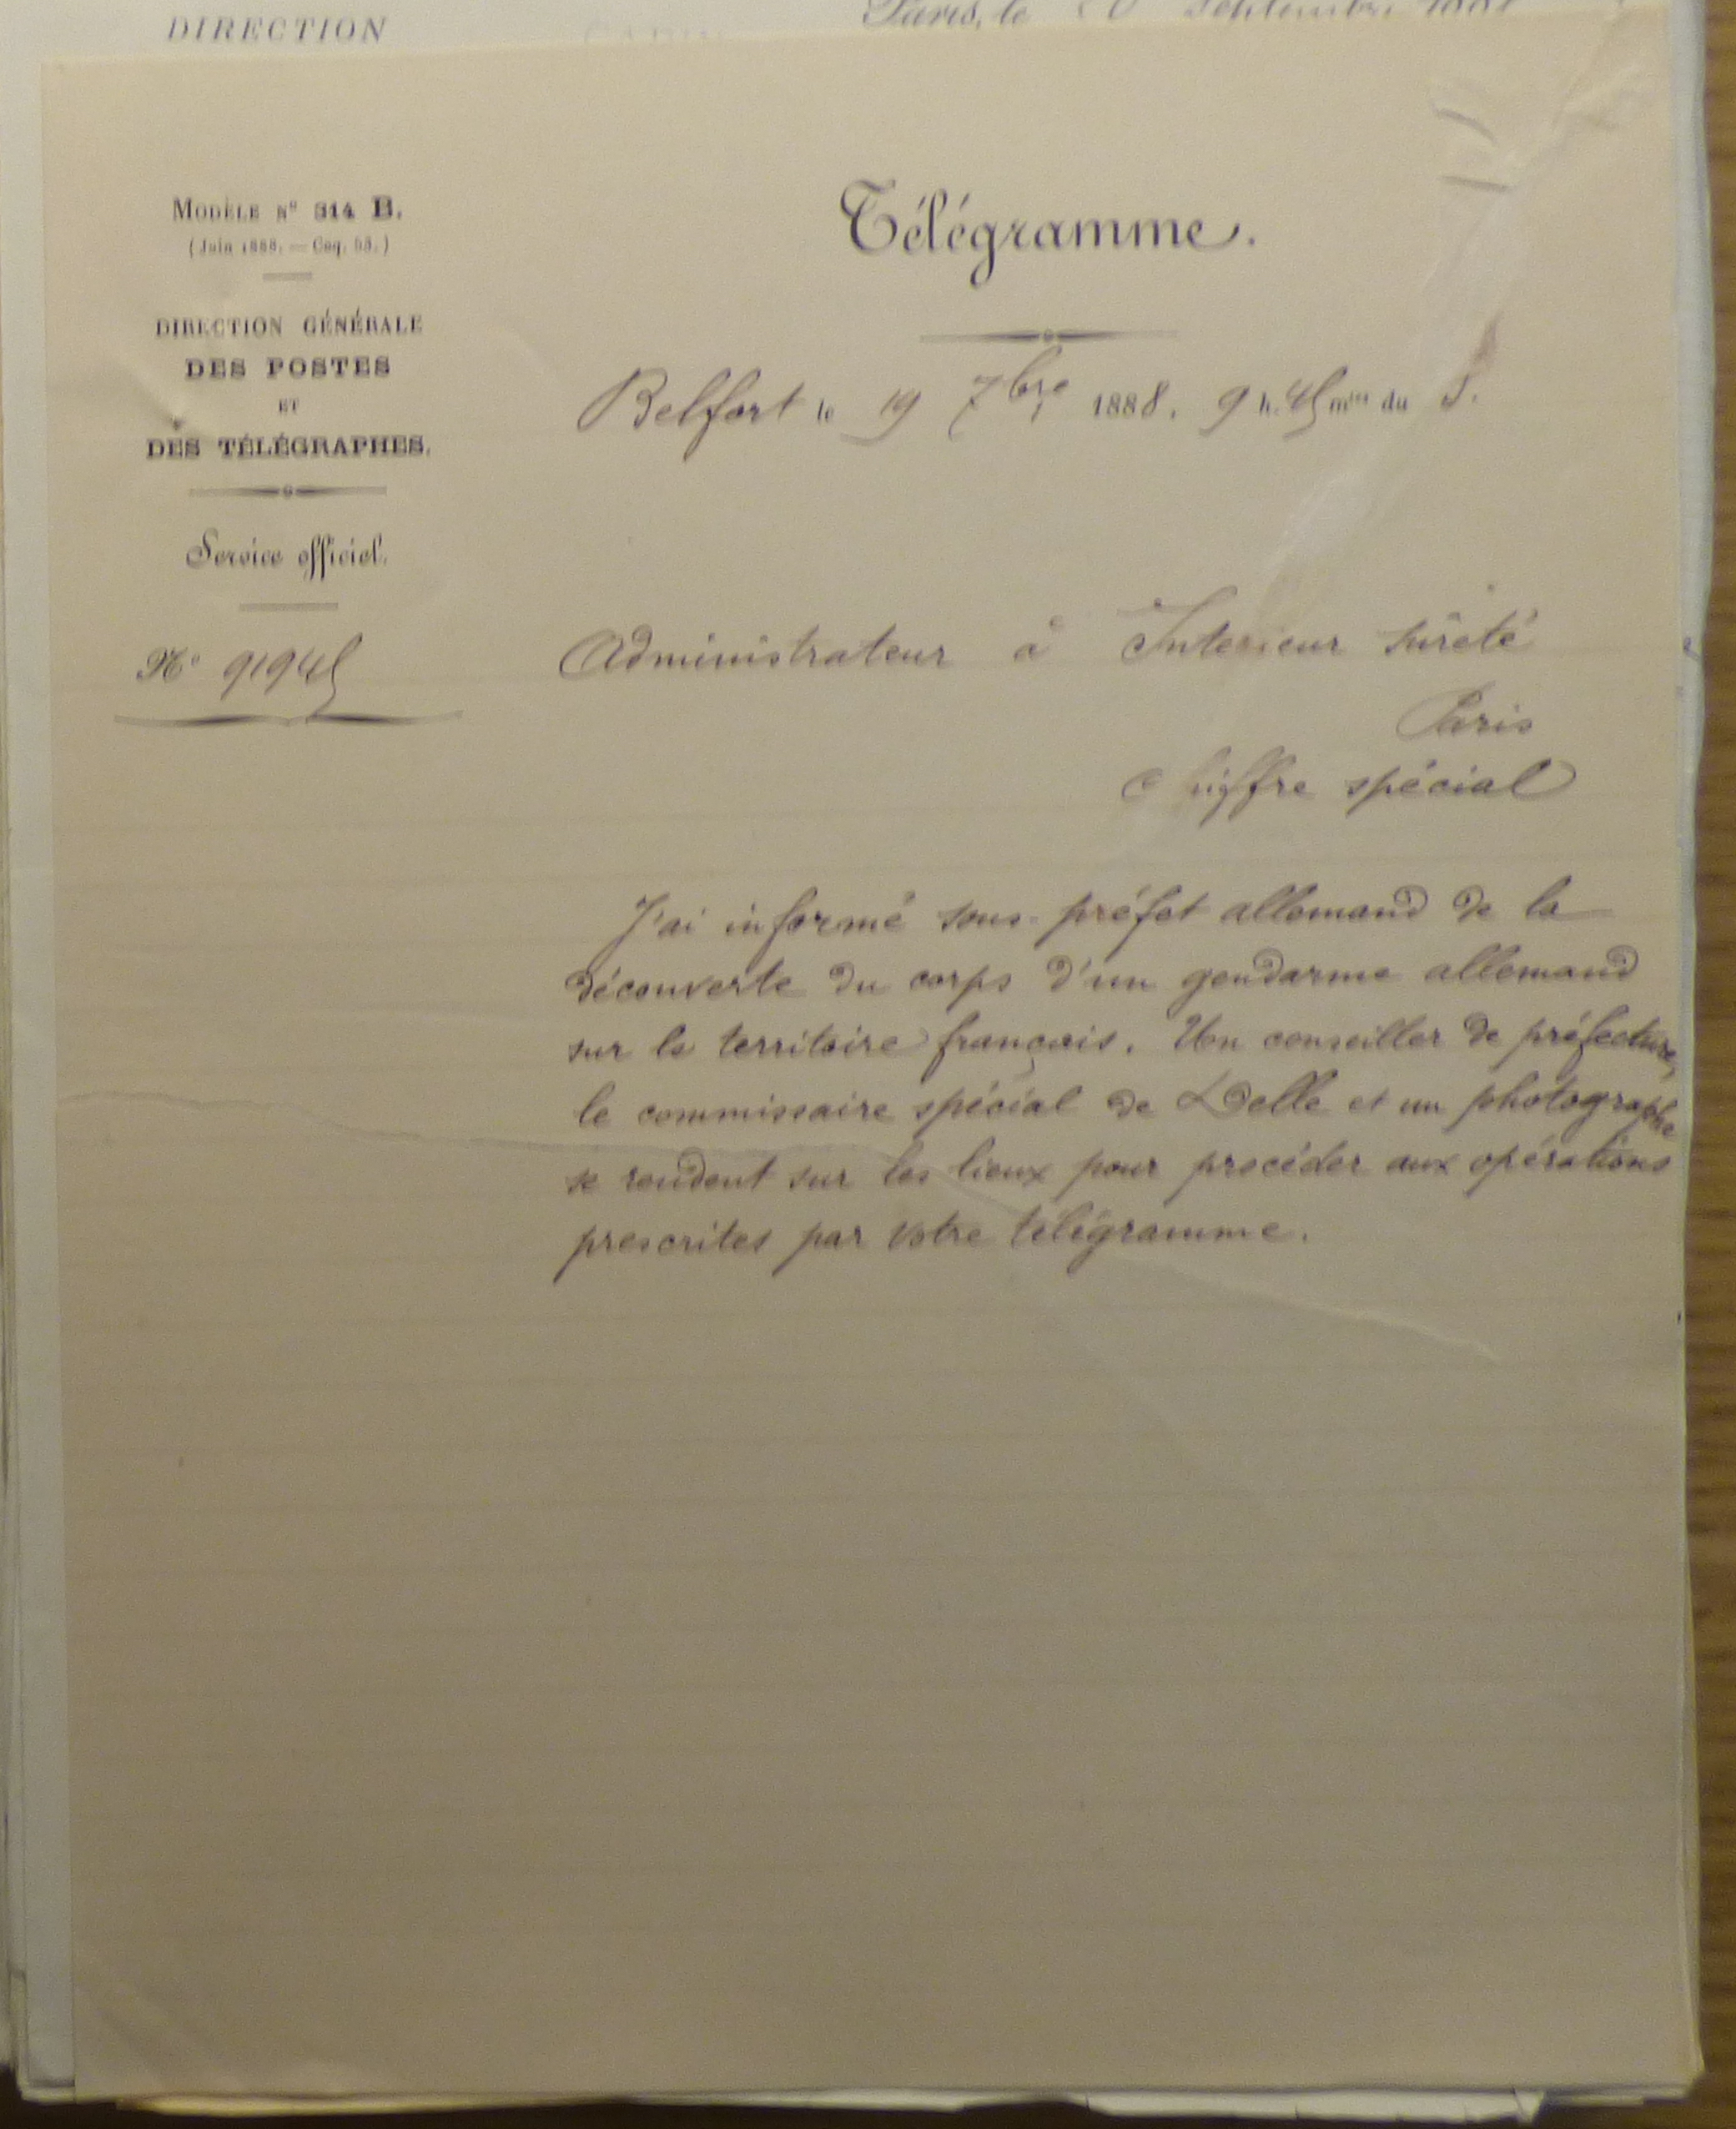 DIRECTION
Paris, le 20 Septembre
MODÈLE Nº 314 B.
(Juin 1888. — Coq. 55.)
DIRECTION GÉNÉRALE
DES POSTES
ET
DES TÉLÉGRAPHES.
Service officiel.
Nº 91945
Télégramme.
Belfort le 19 7bre 1888. 9 h. 45 mtes du S.
Administrateur à Interieur Sûreté
Paris
Chiffre spécial
J'ai informé sous-préfet allemand de la
découverte du corps d'un gendarme allemand
sur le territoire français. Un conseiller de préfecture,
le commissaire spécial de Delle et un photographe
se rendent sur les lieux pour procéder aux opérations
prescrites par votre télégramme.